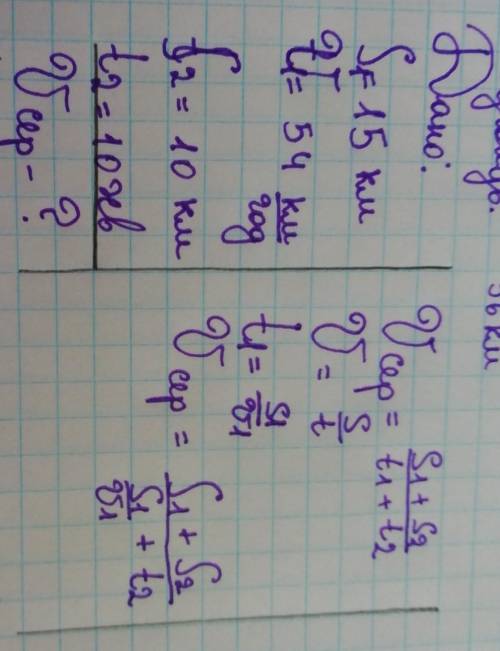 Дано:
S₁ = 15 км
V₁ = 54 км/год
S₂ = 10 км
t₂ = 10 хв
Vсер - ?
36 км
Vсер = (S₁ + S₂)/(t₁ + t₂)
V = S/t
t₁ = S₁/V₁
Vсер = (S₁ + S₂)/(S₁/V₁ + t₂)